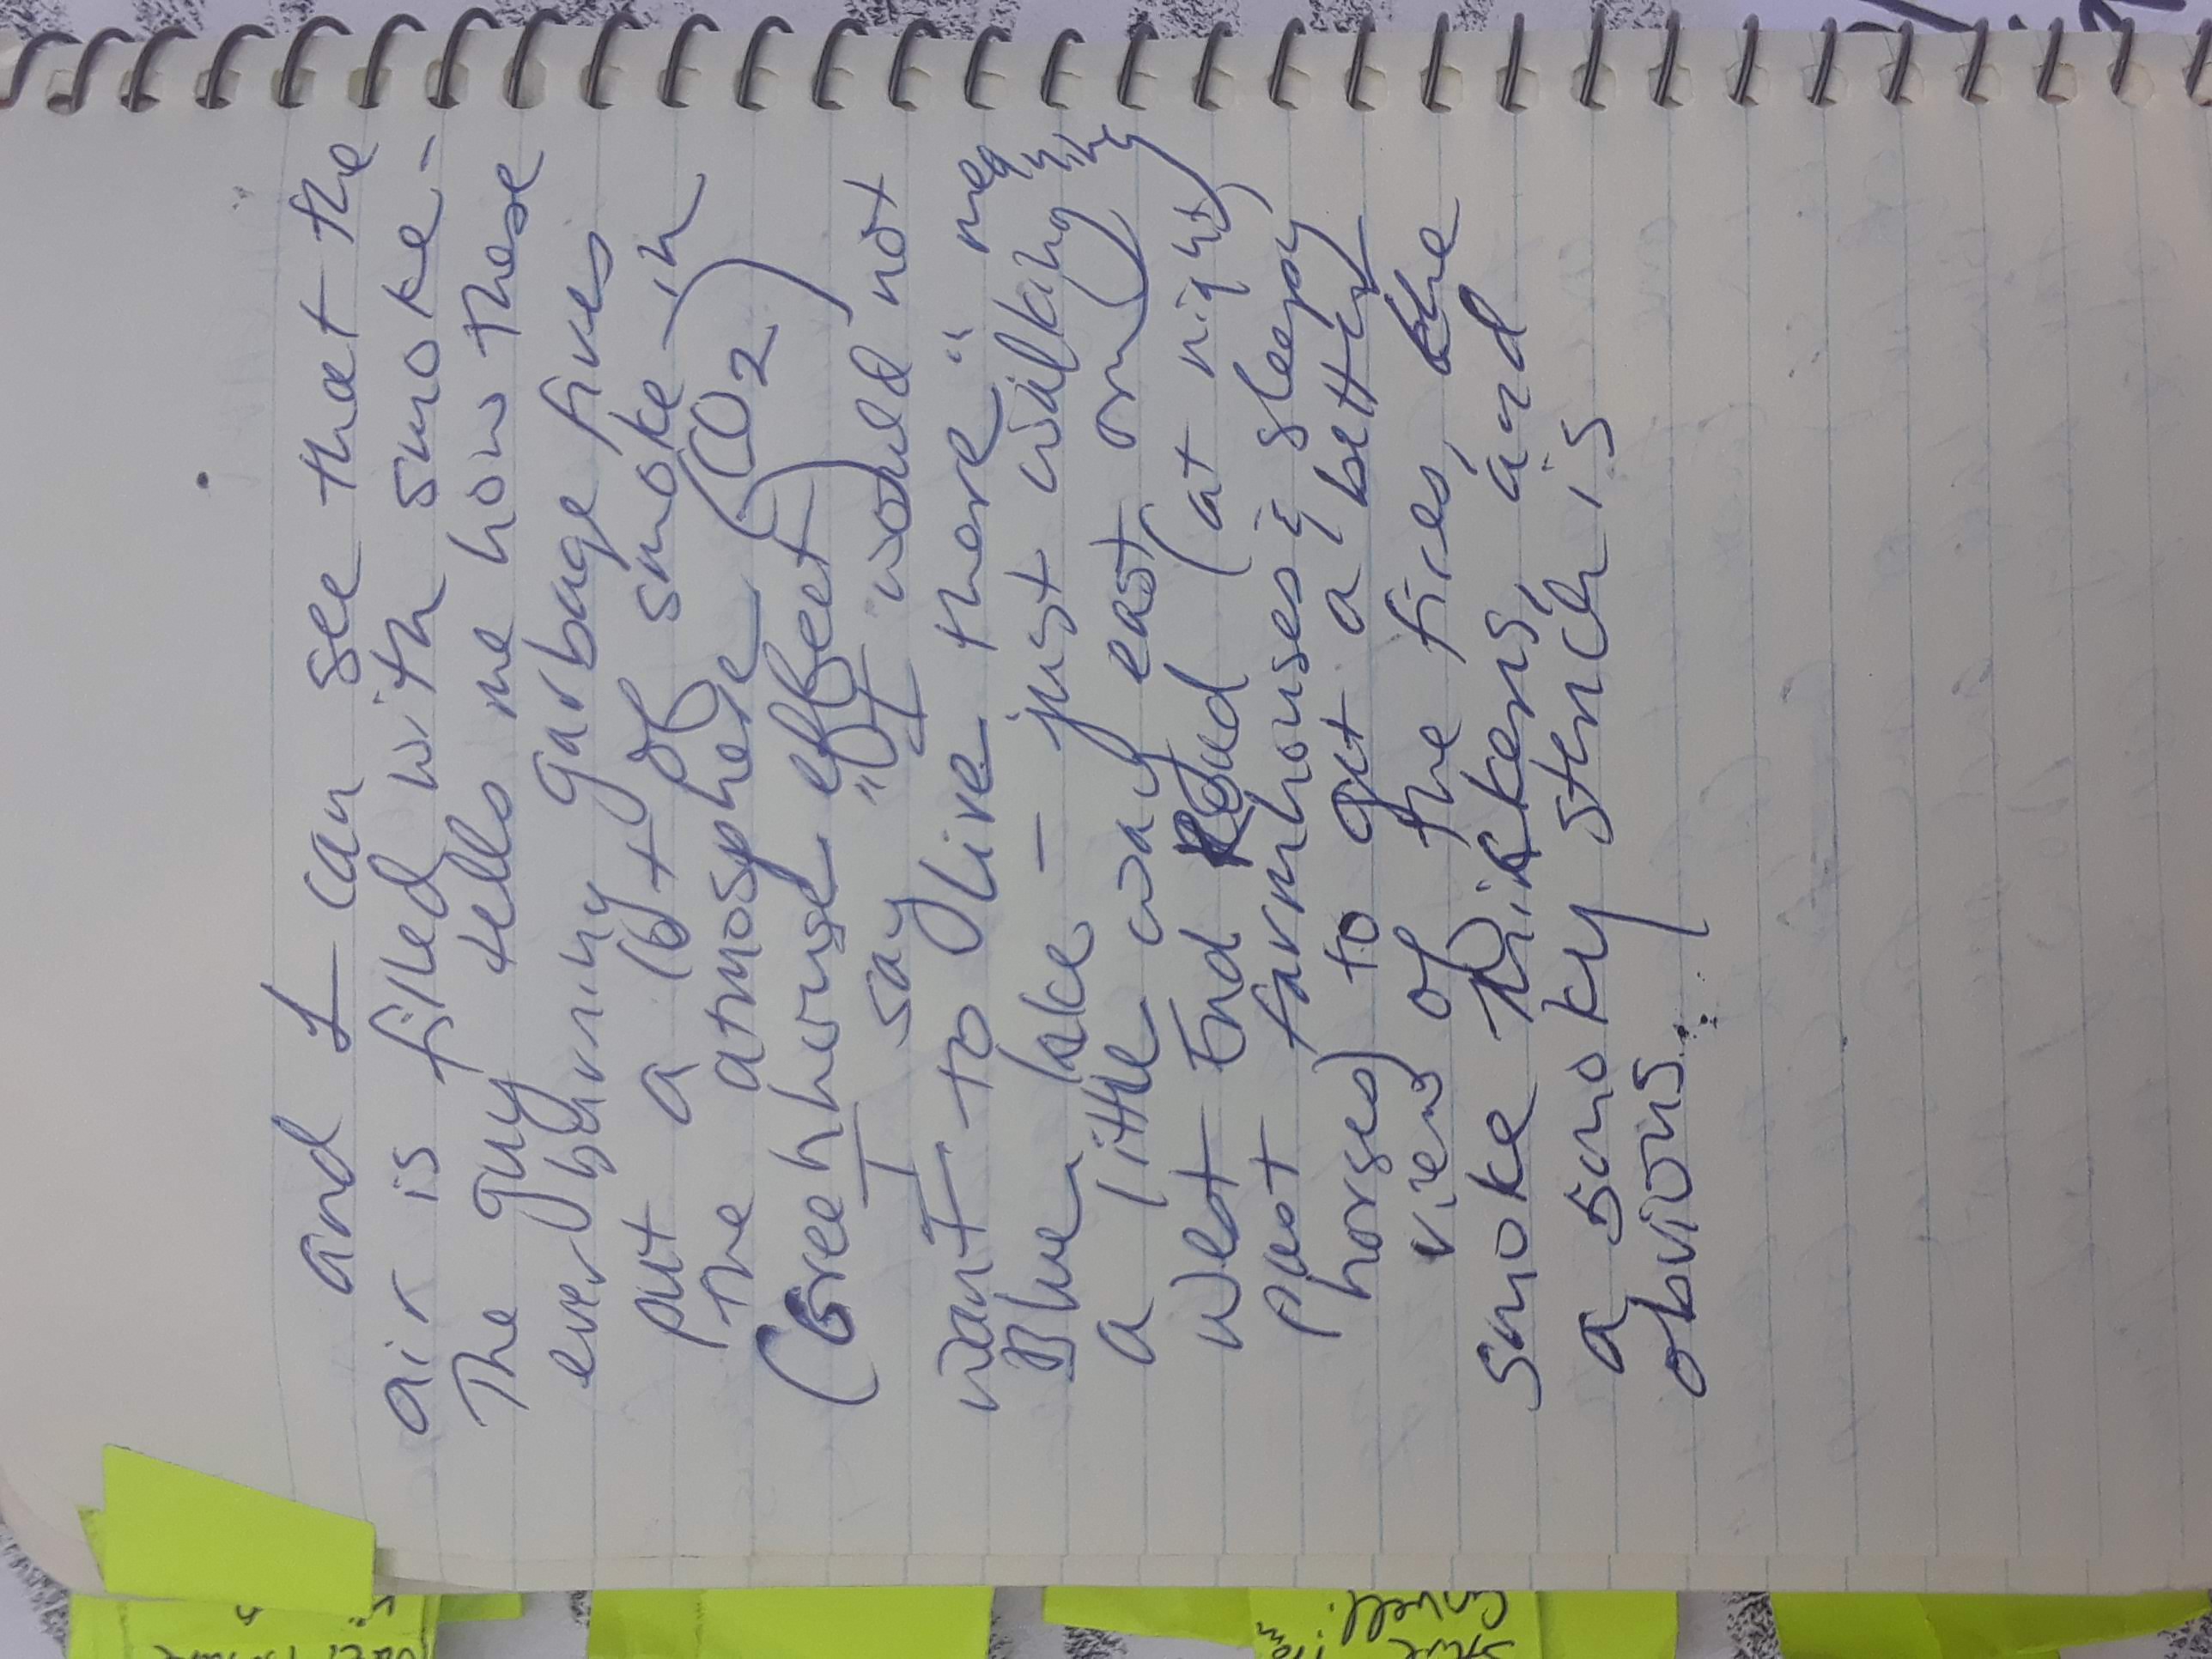 and I can see that the
air is filled with smoke-
The guy tells me how these
everburning garbage fires
put a lot of smoke in
the atmosphere (CO2)
(Greehhouse effect)
I say "I would not
want to live there"
Blue lake - just walking
a little way east on
West End Road (at night)
past farmhouses & sleepy
horses) to get a better
view of the fires, the
smoke thickens, and
a smoky stench is
obvious...